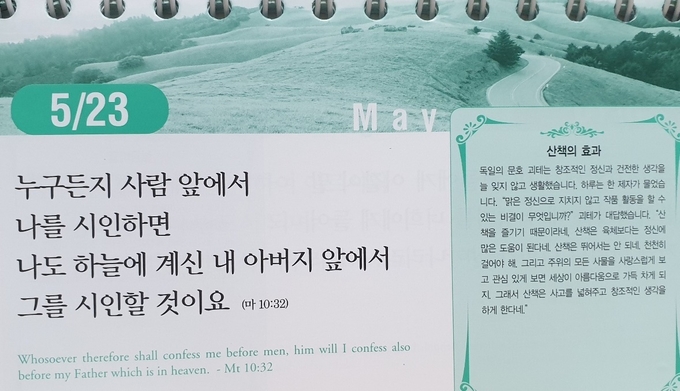 5/23
May
누구든지 사람 앞에서
나를 시인하면
나도 하늘에 계신 내 아버지 앞에서
그를 시인할 것이요 (마 10:32)
Whosoever therefore shall confess me before men, him will I confess also
before my Father which is in heaven. - Mt 10:32
산책의 효과
독일의 문호 괴테는 창조적인 정신과 건전한 생각을
늘 잊지 않고 생활했습니다. 하루는 한 제자가 물었습니
다. "맑은 정신으로 지치지 않고 작품 활동을 할 수
있는 비결이 무엇입니까?" 괴테가 대답했습니다. "산
책을 즐기기 때문이라네, 산책은 육체보다는 정신에
많은 도움이 된다네, 산책은 뛰어서는 안 되네, 천천히
걸어야 해, 그리고 주위의 모든 사물을 사랑스럽게 보
고 관심 있게 보면 세상이 아름다움으로 가득 차게 되
지, 그래서 산책은 사고를 넓혀주고 창조적인 생각을
하게 한다네."